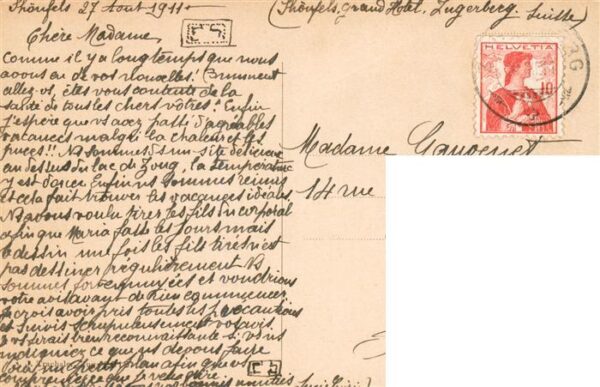 Schönfels 27 Août 1911
(Schönfels, Grand Hôtel, Zugerberg, Suisse)
Chère Madame,
Comme il y a longtemps que nous
avons eu de vos nouvelles! Comment
allez-vs, êtes vous contents de la
santé de tous les chers vôtres? Enfin
j'espère que vs avez passé d'agréables
vacances malgré la chaleur et les
puces!! Ns sommes ds un site délicieux
au dessus du lac de Zoug, la température
y est douce. Enfin ns sommes réunis
et cela fait trouver les vacances idéales.
Ns avons voulu tirer les fils du corporal
afin que Maria fasse les jours mais
le dessin une fois les fils tirés n'est
pas dessiner régulièrement. Ns
sommes fort ennuyées et voudrions
votre avis avant de rien commencer.
Je crois avoir pris toutes les précautions
et suivis scrupuleusement vos avis.
Je vs serais bien reconnaissante si vous
m'indiquiez ce que ns devons faire
petit plan afin que ns
comprenions
HELVETIA
10
Madame
14 rue